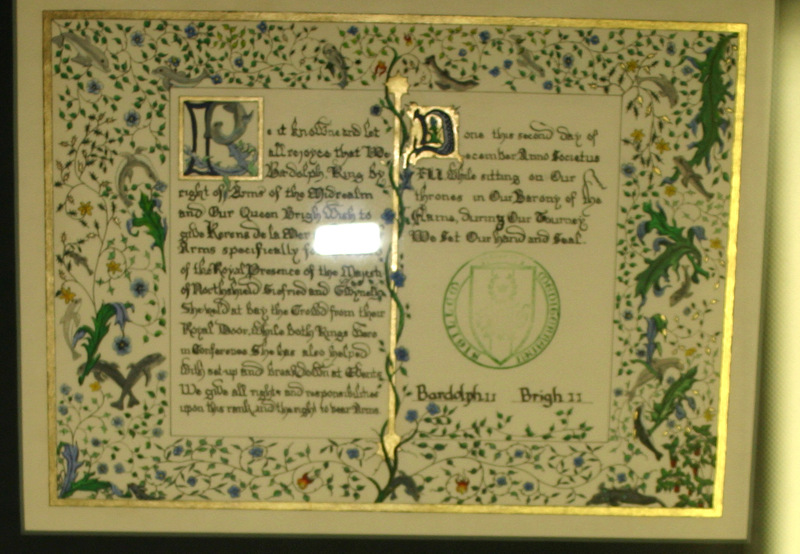 Be it knowne and let
all rejoyce that We
Bardolph, King by
right of Arms of the Midrealm
and Our Queen Brigh Wish to
give Kerena de la Mer
Arms specifically
of the Royal Presence of the Majesty
of Northshield Siefried and Gwynella
She held at bay the Crowd from their
Royal Door, While both Kings Were
in Conference. She has also helped
With set-up and breakdown at Events.
We give all rights and responsibilities
upon this rank and the right to bear Arms.
Done this second day of
December Anno Societius
XLI While sitting on Our
thrones in Our Barony of the
Flame, during Our Tourney
We Set Our hand and Seal.
Bardolph II Brigh II